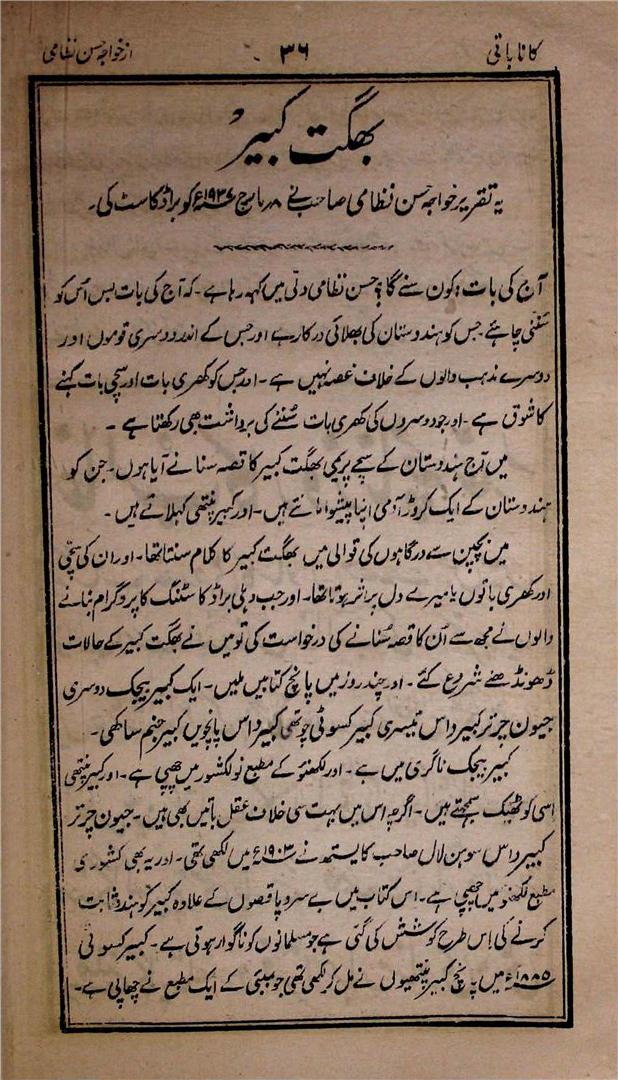 کانا باتی ۳۶ از خواجہ حسن نظامی
بھگت کبیر
یہ تقریر خواجہ حسن نظامی صاحب نے ۸ مارچ ۱۹۳۷ء کو براڈ کاسٹ کی۔
آج کی بات؛ کون سنے گا؟ حسن نظامی دلی میں کہہ رہا ہے۔ کہ آج کی بات بس اس کو
سننی چاہئے جس کو ہندوستان کی بھلائی درکار ہے اور جس کے اندر دوسری قوموں اور
دوسرے مذہب والوں کے خلاف غصہ نہیں ہے۔ اور جس کو کھری بات اور سچی بات کہنے
کا شوق ہے۔ اور جو دوسروں کی کھری بات سننے کی برداشت بھی رکھتا ہے۔
میں آج ہندوستان کے سچے پریمی بھگت کبیر کا قصہ سنانے آیا ہوں۔ جن کو
ہندوستان کے ایک کروڑ آدمی اپنا پیشوا مانتے ہیں۔ اور کبیر پنتھی کہلاتے ہیں۔
میں بچپن سے درگاہوں کی قوالی میں بھگت کبیر کا کلام سنتا تھا۔ اور ان کی سچی
اور کھری باتوں کا میرے دل پر اثر ہوتا تھا۔ اور جب دہلی براڈ کاسٹنگ کا پروگرام بنانے
والوں نے مجھ سے ان کا قصہ سنانے کی درخواست کی تو میں نے بھگت کبیر کے حالات
ڈھونڈھنے شروع کئے۔ اور چند روز میں پانچ کتابیں ملیں۔ ایک کبیر بیجک دوسری
جیون چرتر کبیر داس تیسری کبیر کسوٹی چوتھی کبیر داس پانچویں کبیر جنم ساکھی۔
کبیر بیجک ناگری میں ہے۔ اور لکھنؤ کے مطبع نولکشور میں چھپی ہے۔ اور کبیر پنتھی
اسی کو ٹھیک سمجھتے ہیں۔ اگرچہ اس میں بہت سی خلاف عقل باتیں بھی ہیں۔ جیون چرتر
کبیر داس سوہن لال صاحب کایستھ نے ۱۹۰۳ء میں لکھی تھی۔ اور یہ بھی کشوری
مطبع لکھنؤ میں چھپی ہے۔ اس کتاب میں بے سروپا قصوں کے علاوہ کبیر کو ہندو ثابت
کرنے کی اس طرح کوشش کی گئی ہے جو مسلمانوں کو ناگوار ہوتی ہے۔ کبیر کسوٹی
۱۸۸۵ء میں پانچ کبیر پنتھیوں نے مل کر لکھی تھی جو بمبئی کے ایک مطبع نے چھاپی ہے۔